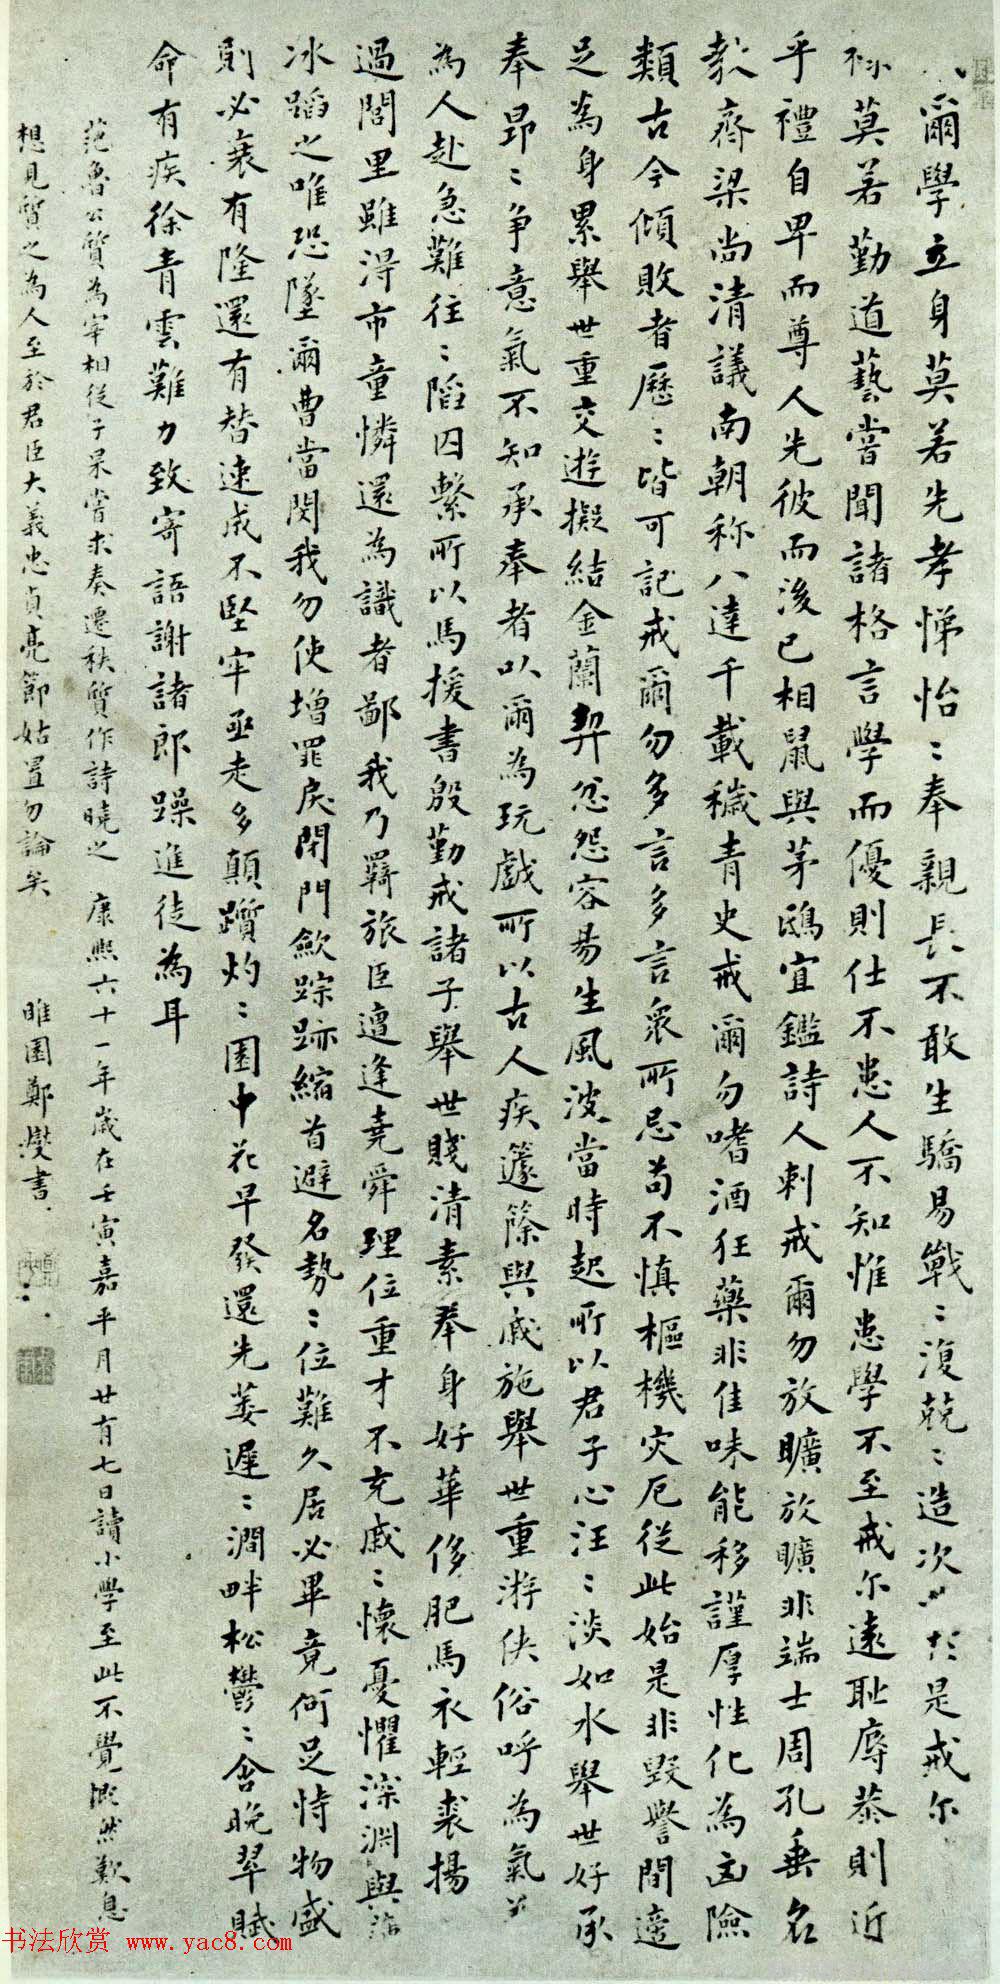 爾學立身莫若先孝悌怡〻奉親長不敢生驕易戰〻復兢〻造次是戒尔
莫若勤道藝嘗聞諸格言學而優則仕不患人不知惟患學不至戒尔遠恥辱恭則近
乎禮自卑而尊人先彼而後己相鼠與茅鴟宜鑑詩人刺戒爾勿放曠放曠非端士周孔垂名
教齊梁尚清議南朝称八達千載穢青史戒爾勿嗜酒狂藥非佳味能移謹厚性化為凶險
類古今傾敗者歷〻皆可記戒爾勿多言多言衆所忌苟不慎樞機灾厄從此始是非毀譽間適
足為身累舉世重交遊擬結金蘭契忿怨容易生風波當時起所以君子心汪〻淡如水舉世好承
奉昂〻爭意氣不知承奉者以爾為玩戲所以古人疾籧篨與戚施舉世重游俠俗呼為氣
為人赴急難往〻陷囚繫所以馬援書殷勤戒諸子舉世賤清素奉身好華侈肥馬衣輕裘揚
過閭里雖得市童憐還為識者鄙我乃羇旅臣遭逢堯舜理位重才不充戚〻懷憂懼深淵與
冰蹈之唯恐墜爾曹當閔我勿使增罪戾閉門歛踪跡縮首避名勢〻位難久居必畢竟何足恃物盛
則必衰有隆還有替速成不堅牢亟走多顛躓灼〻園中花早發還先萎遲〻澗畔松鬱〻含晚翠賦
命有疾徐青雲難力致寄語謝諸郎躁進徒為耳
范魯公質為宰相從子杲嘗求奏遷秩質作詩曉之 康熙六十一年歲在壬寅嘉平月廿有七日讀小學至此不覺慨然歎息
想見質之為人至於君臣大義忠貞亮節姑置勿論矣 睢園鄭燮書
书法欣赏 www.yac8.com